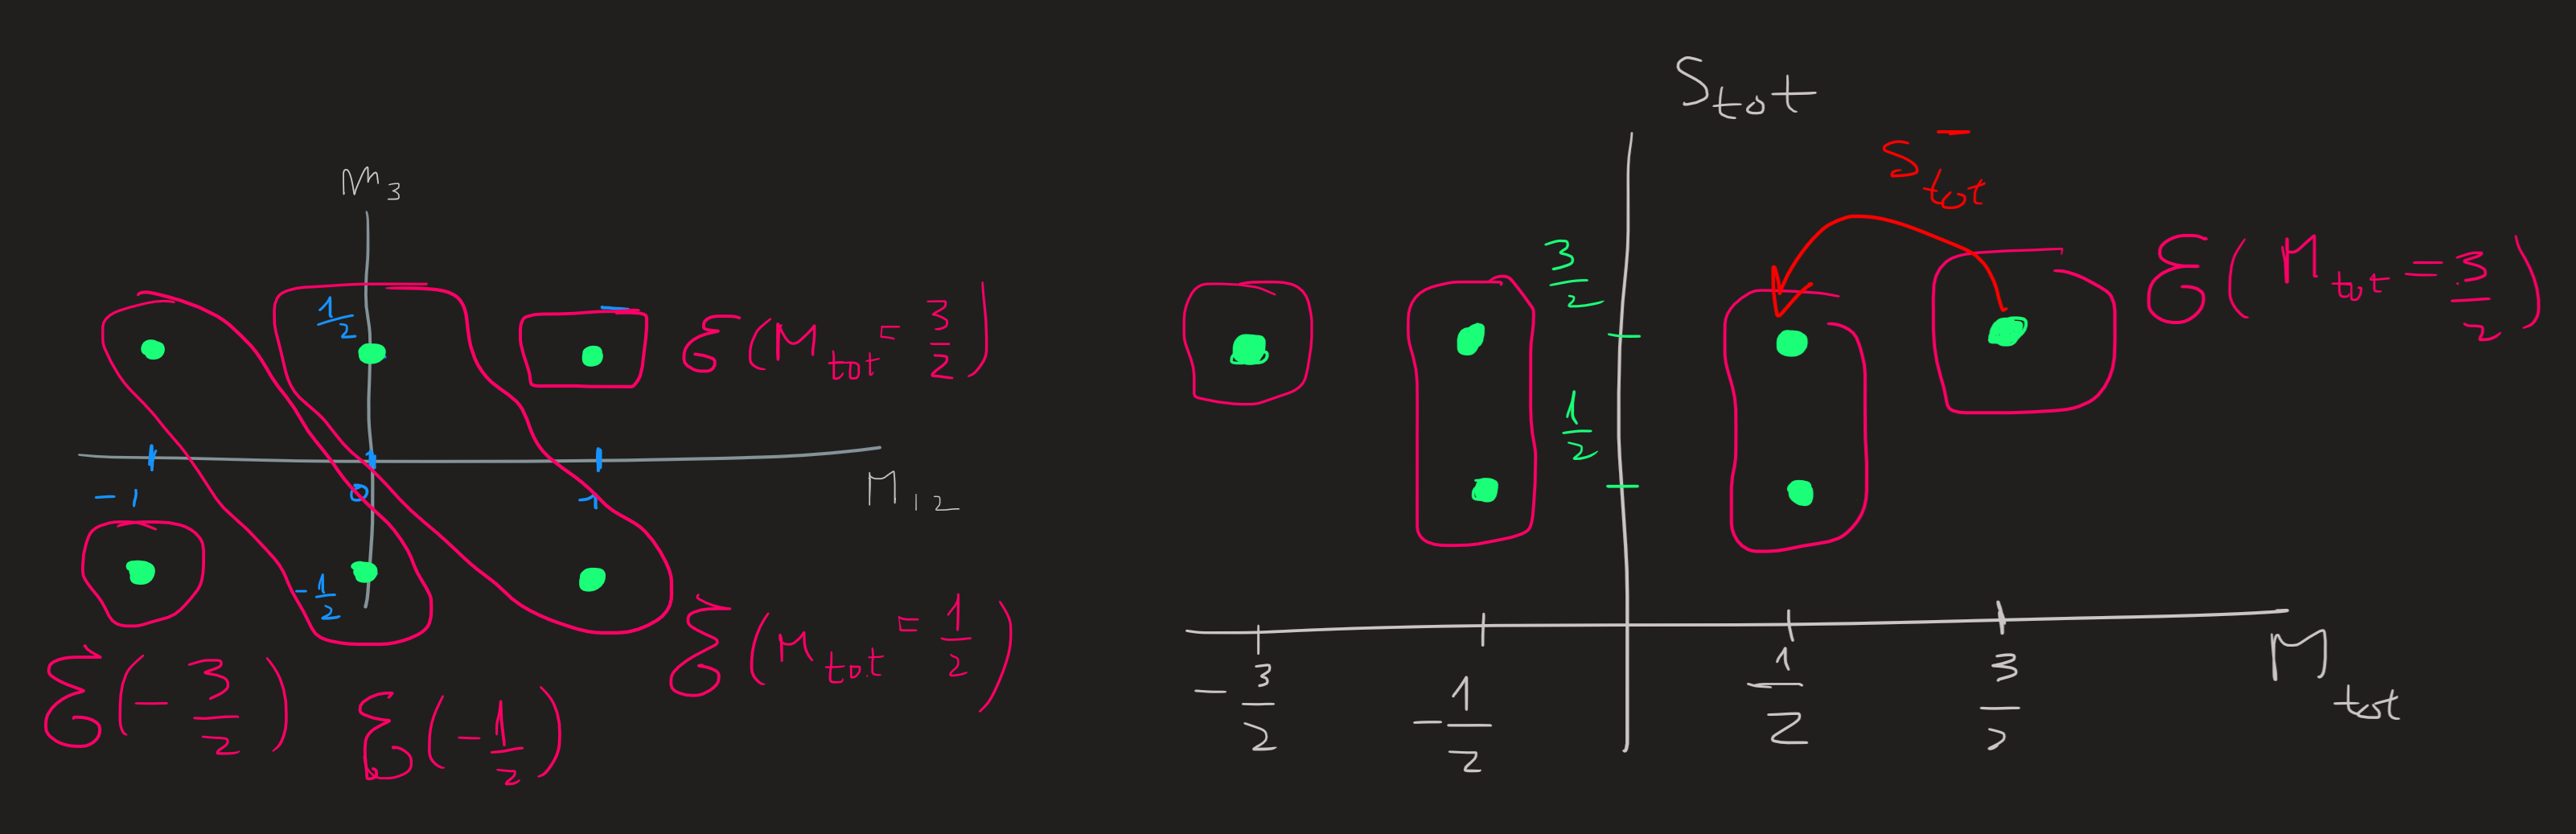 m₃
1/2
ℰ(M_tot = 3/2)
-1
0
1
M₁₂
-1/2
ℰ(-3/2)
ℰ(-1/2)
ℰ(M_tot = 1/2)
S_tot
S⁻_tot
3/2
1/2
ℰ(M_tot = 3/2)
-3/2
-1/2
1/2
3/2
M_tot